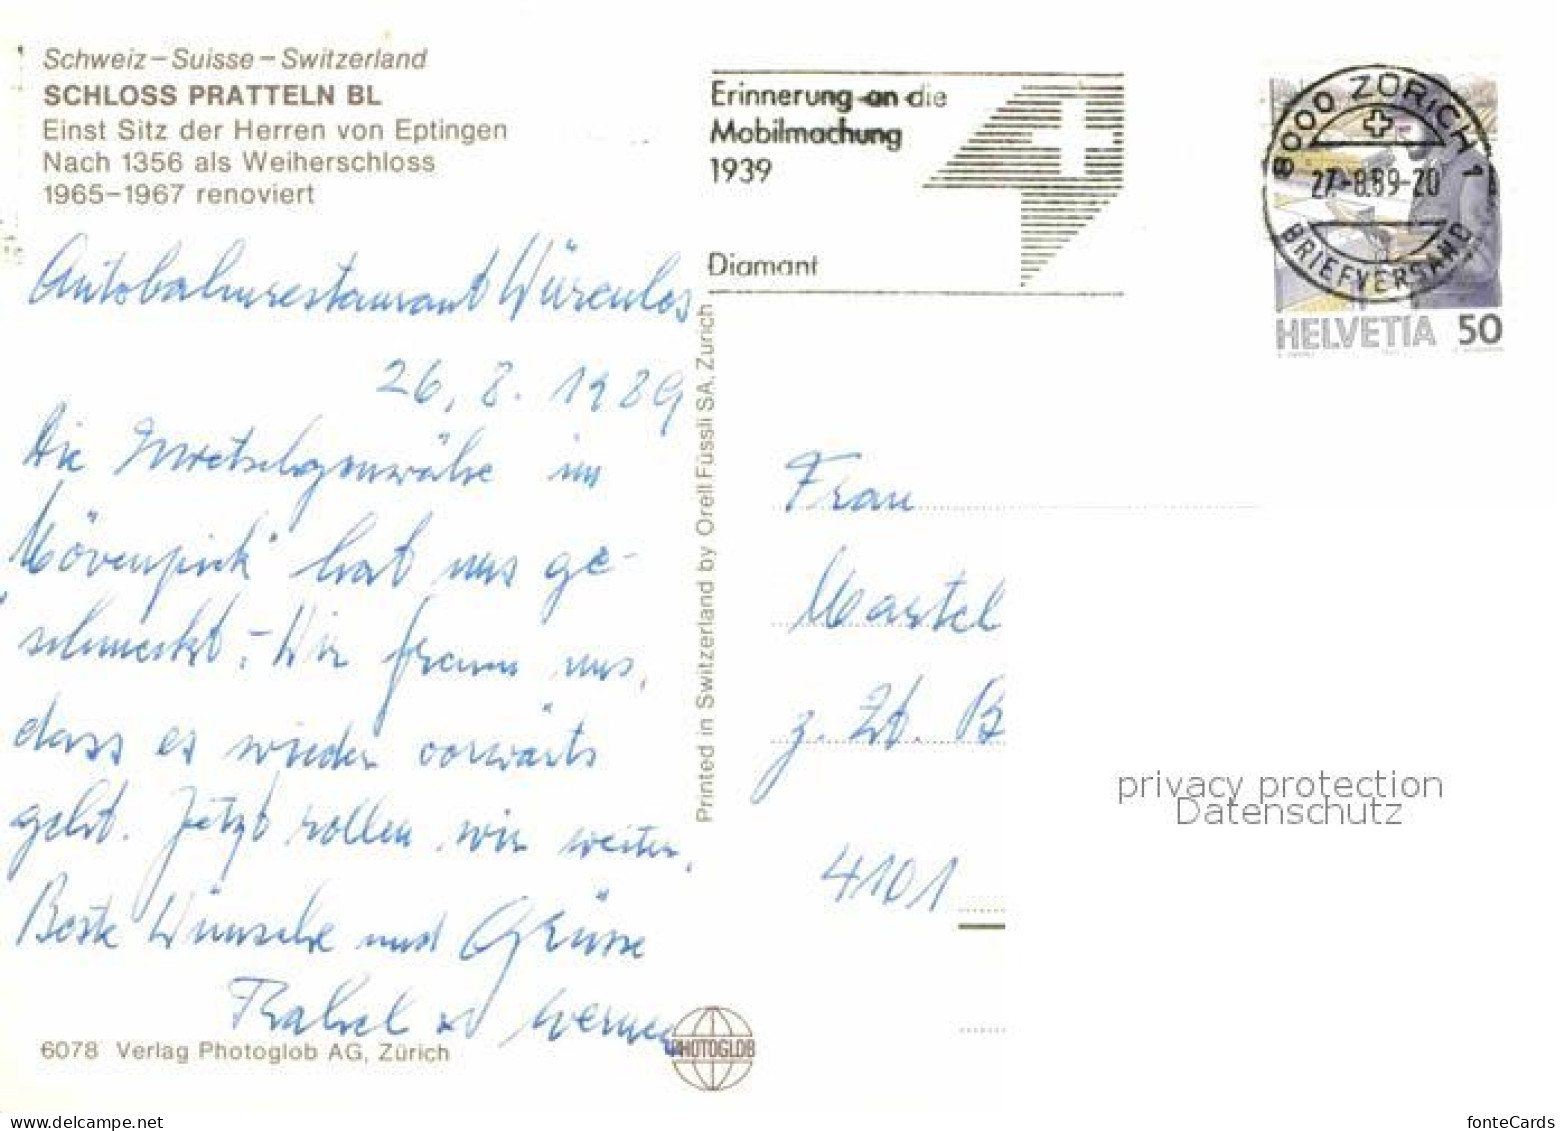 Schweiz – Suisse – Switzerland
SCHLOSS PRATTELN BL
Einst Sitz der Herren von Eptingen
Nach 1356 als Weiherschloss
1965–1967 renoviert
Autobahnrestaurant Würenlos
26. 8. 1989
Die im
"Mövenpick" hat uns ge-
schmeckt. – Wir freuen uns,
dass es wieder vorwärts
geht. Jetzt rollen wir weiter.
Beste Wünsche und Grüsse
Rahel Werner
6078 Verlag Photoglob AG, Zürich
PHOTOGLOB
Printed in Switzerland by Orell Füssli SA, Zürich
Erinnerung an die
Mobilmachung
1939
Diamant
8000 ZÜRICH 1
27.-8.89-20
BRIEFVERSAND
HELVETIA 50
Frau
Martel
z. Zt. B
4101
privacy protection
Datenschutz
www.delcampe.net
fonteCards